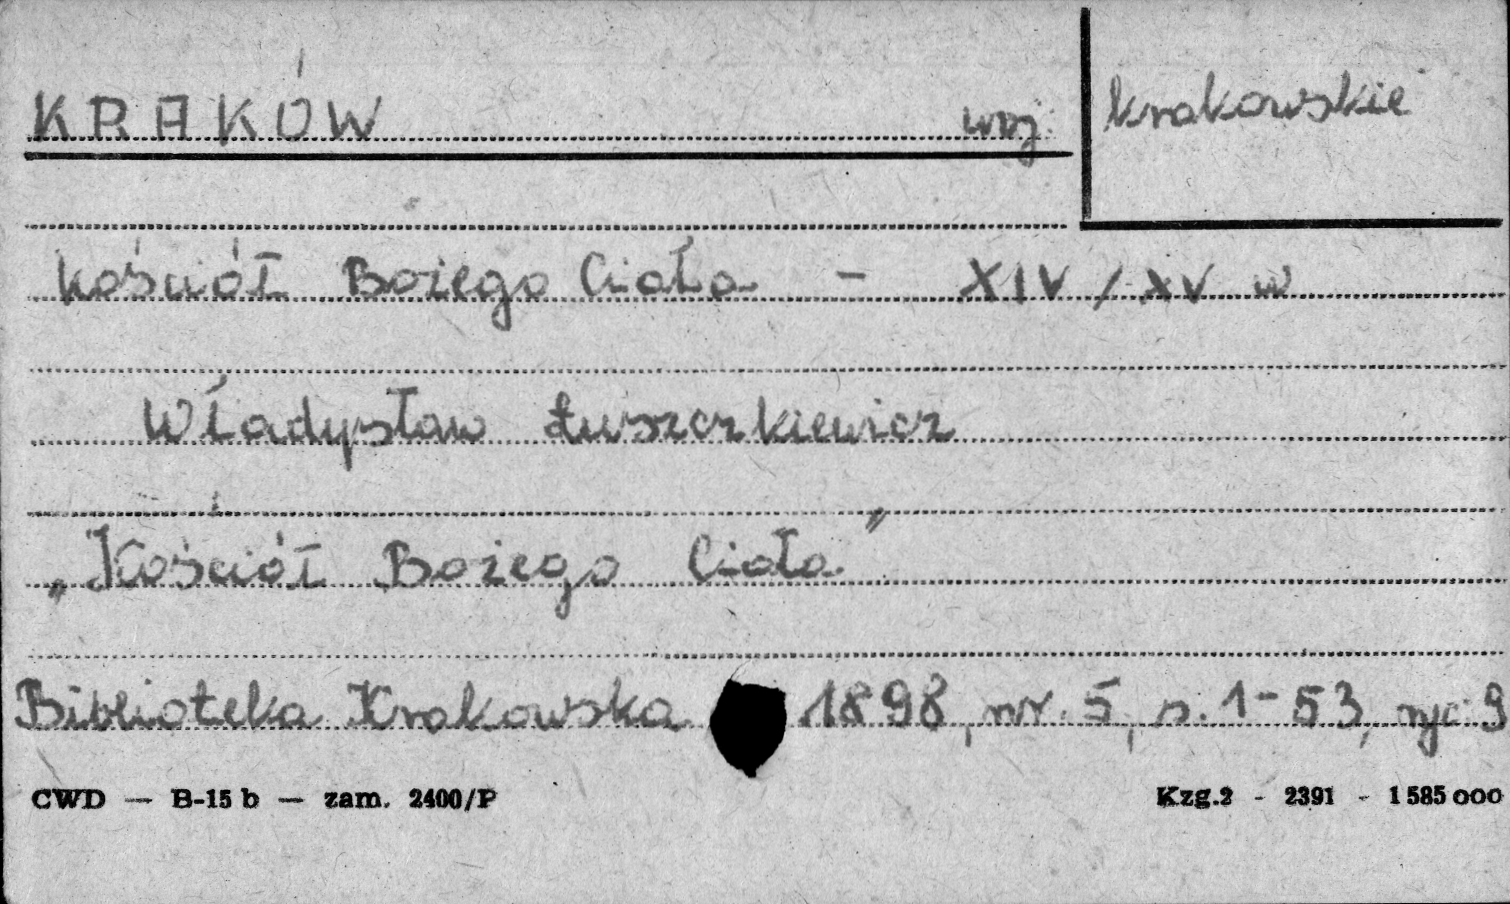 KRAKÓW woj. krakowskie
kościół Bożego Ciała - XIV/XV w
Władysław Łuszczkiewicz
„Kościół Bożego Ciała”
Biblioteka Krakowska 1898, nr. 5, s. 1-53, ryc. 9
CWD — B-15 b — zam. 2400/P Kzg.2 - 2391 - 1 585 000